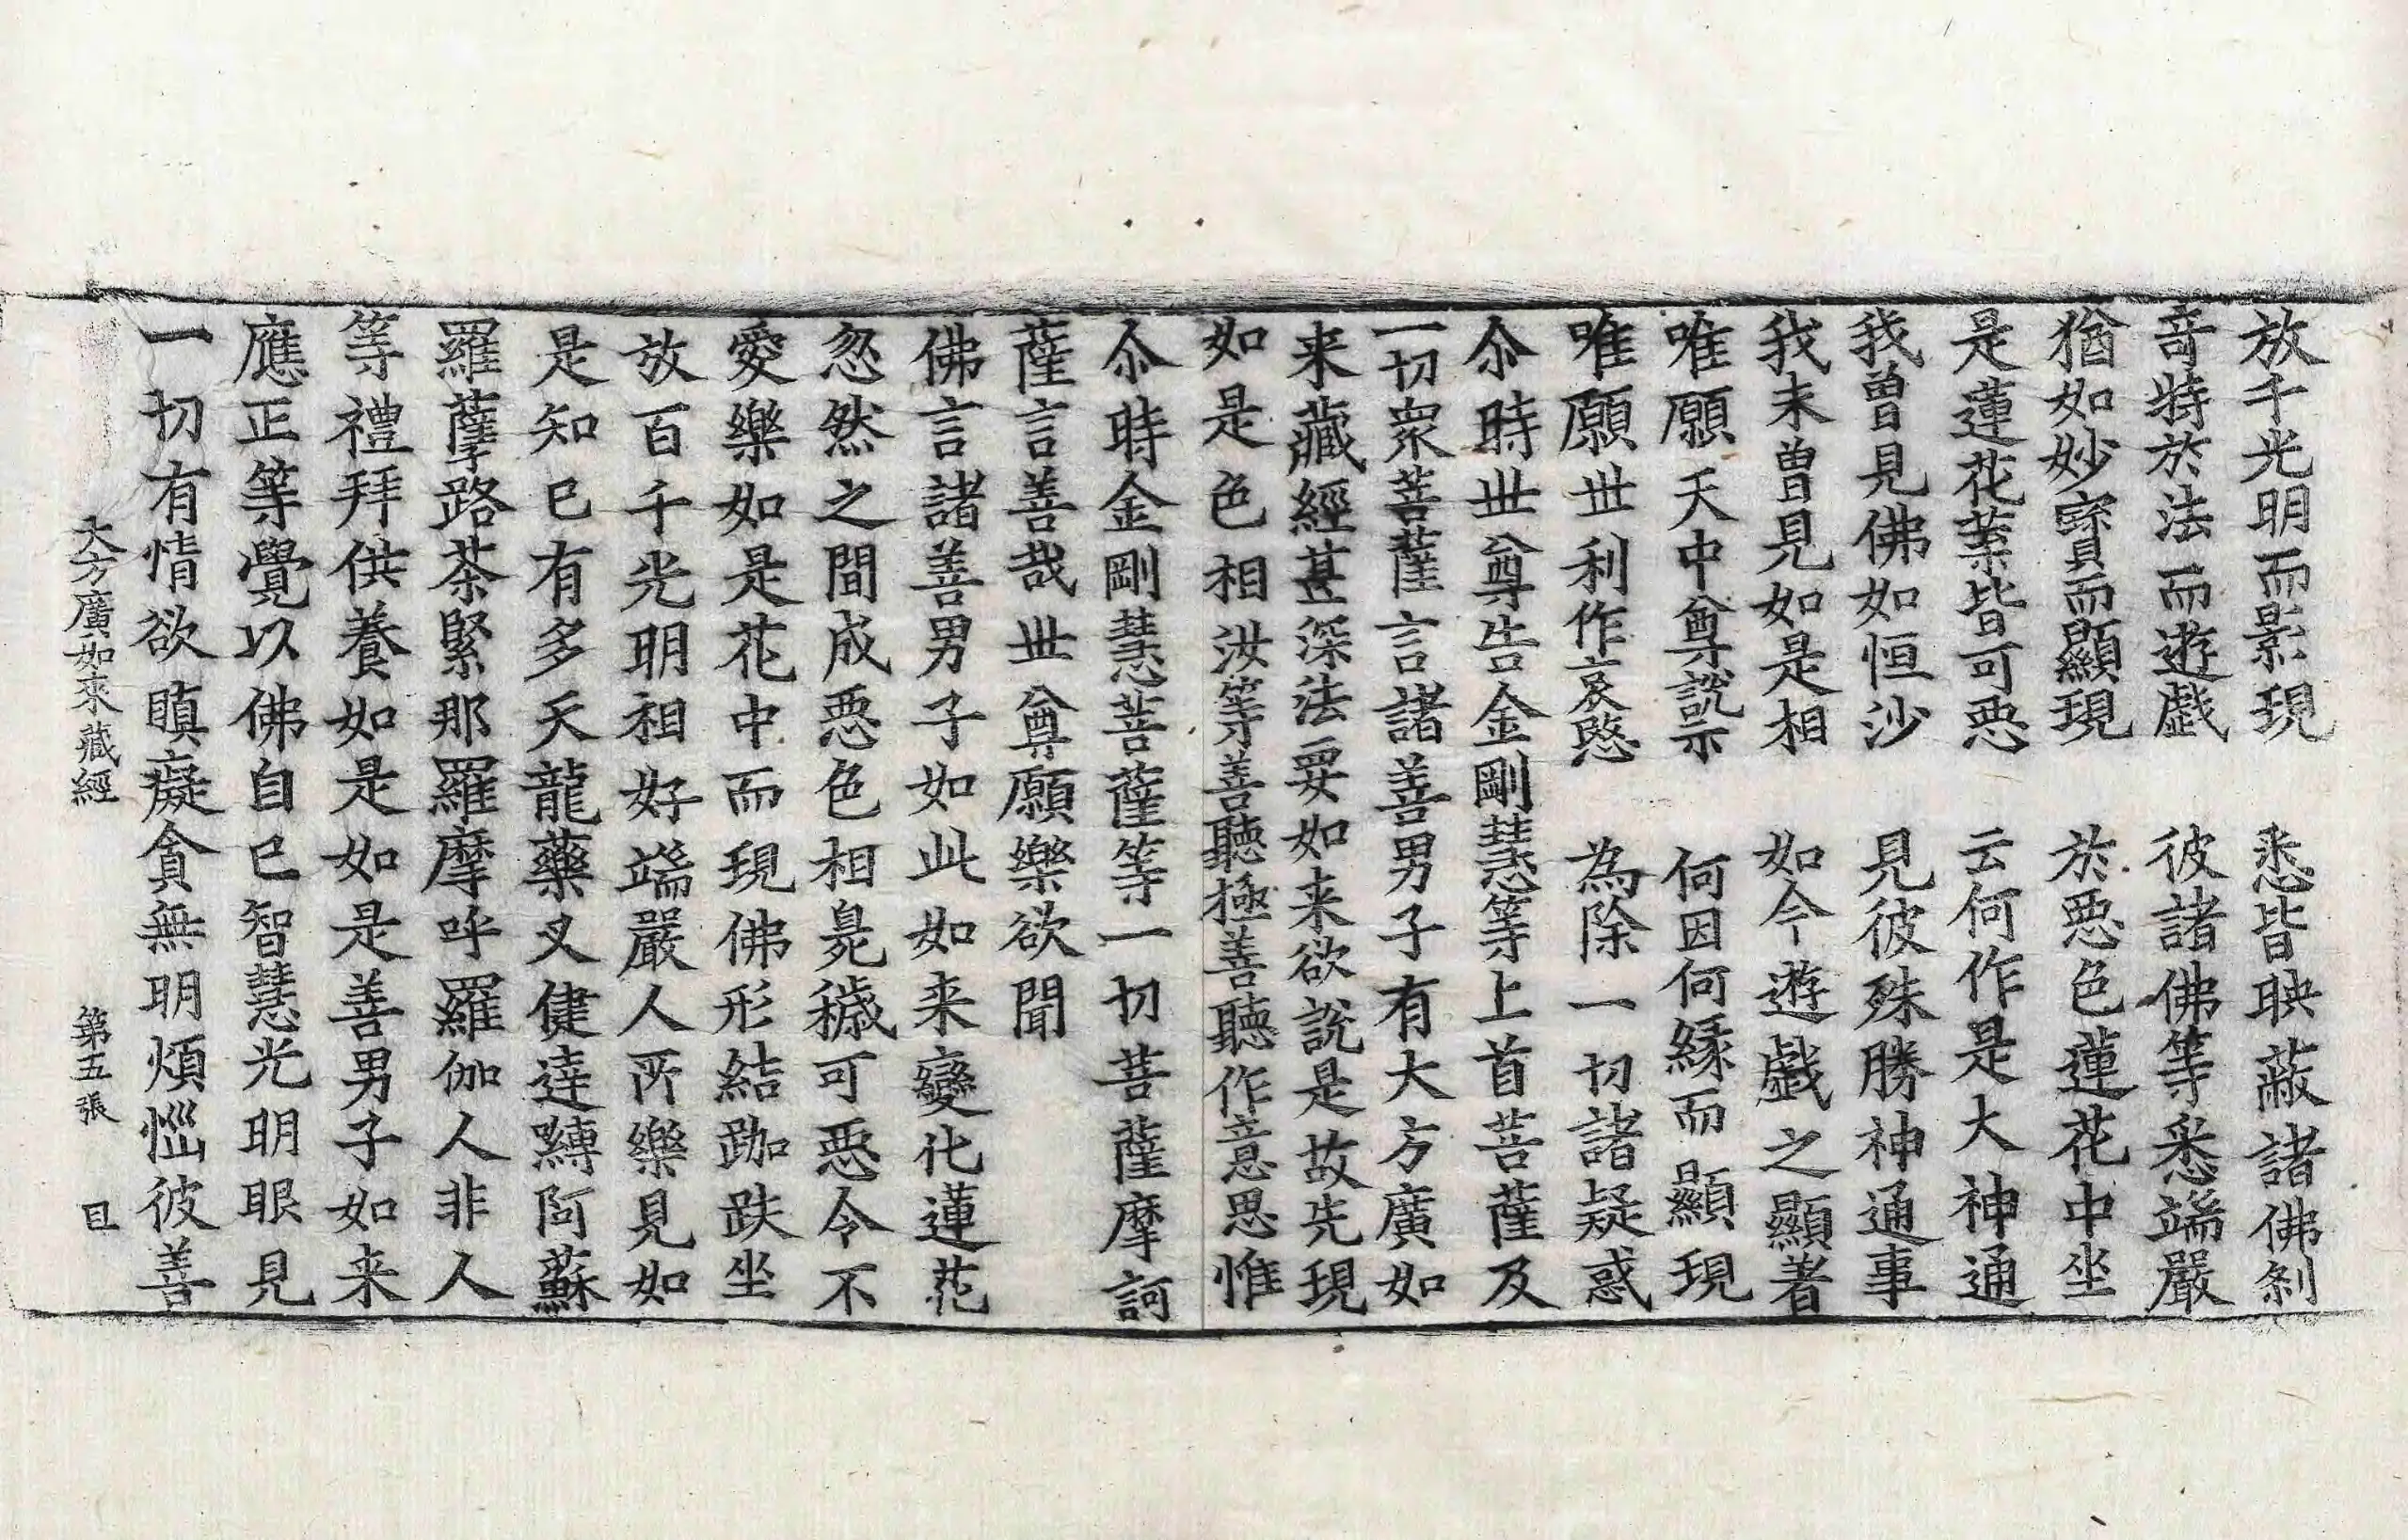 放千光明而影現　悉皆映蔽諸佛刹
竒特於法而遊戲　彼諸佛等悉端嚴
猶如妙寳而顯現　於惡色蓮花中坐
是蓮花葉皆可惡　云何作是大神通
我曽見佛如恒沙　見彼殊勝神通事
我未曽見如是相　如今遊戲之顯著
唯願天中尊說示　何因何縁而顯現
唯願丗利作哀愍　為除一切諸疑惑
尒時丗尊告金剛慧等上首菩薩及
一切衆菩薩言諸善男子有大方廣如
来藏經甚深法要如来欲說是故先現
如是色相汝等善聽極善聽作意思惟
尒時金剛慧菩薩等一切菩薩摩訶
薩言善哉丗尊願樂欲聞
佛言諸善男子如此如来變化蓮花
忽然之間成惡色相臭穢可惡令不
愛樂如是花中而現佛形結跏趺坐
放百千光明相好端嚴人所樂見如
是知已有多天龍藥叉健達嚩阿蘇
羅薩路茶緊那羅摩呼羅伽人非人
等禮拜供養如是如是善男子如来
應正等覺以佛自已智慧光明眼見
一切有情欲瞋癡貪無明煩惱彼善
大方廣如來藏經　第五張　目